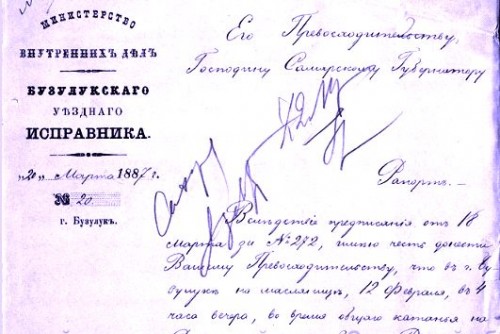 МИНИСТЕРСТВО
ВНУТРЕННИХЪ ДѢЛЪ
БУЗУЛУКСКАГО
УѢЗДНАГО
ИСПРАВНИКА.
„20„ Марта 1887 г.
№ 20
г. Бузулукъ.
Его Превосходительству,
Господину Самарскому Губернатору
Рапортъ.
Вслѣдствіе предписанія отъ 18
Марта за №272, имѣю честь донести
Вашему Превосходительству, что въ г. Бу
зулукѣ на масляницѣ, 12 Февраля, въ 4
часа вечера, во время общаго катанья на